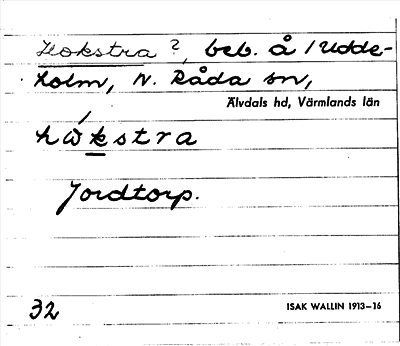 Hokstra ?, beb. å / Udde-
holm, N. Råda sn,
Älvdals hd, Värmlands län
hòkstra
Jordtorp.
32
ISAK WALLIN 1913–16